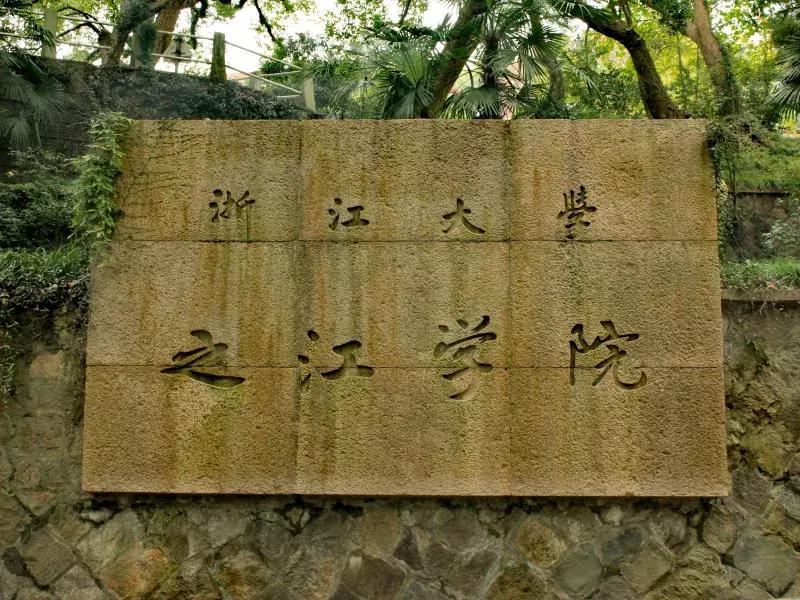 浙江大學
之江学院